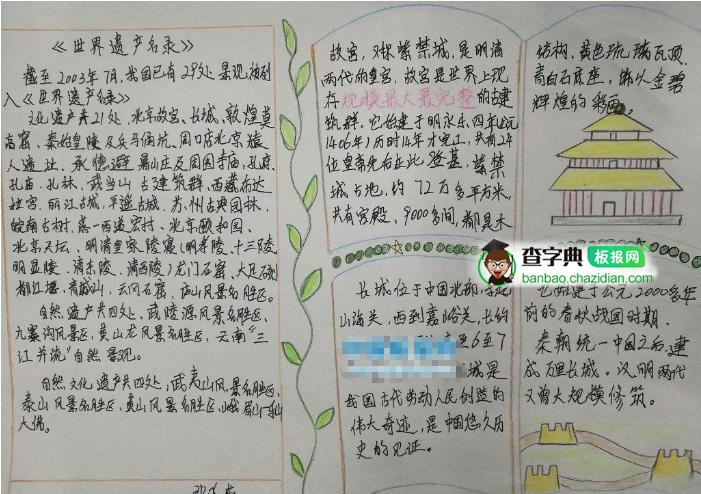 《世界遗产名录》
截至2003年7月,我国已有29处景观被列
入《世界遗产名录》
文化遗产有21处,北京故宫、长城、敦煌莫
高窟、秦始皇陵及兵马俑坑、周口店北京猿
人遗址、承德避暑山庄及周围寺庙、孔府、
孔庙、孔林、武当山古建筑群、西藏布达
拉宫、丽江古城、平遥古城、苏州古典园林、
皖南古村、西递宏村、北京颐和园、
北京天坛、明清皇家陵寝(明孝陵、十三陵
明显陵、清东陵、清西陵)龙门石窟、大足石刻
都江堰、青城山、云冈石窟、庐山风景名胜区。
自然遗产共四处,武陵源风景名胜区、
九寨沟风景区、黄山龙风景名胜区、云南“三
江并流”自然景观。
自然文化遗产共四处:武夷山风景名胜区、
泰山风景名胜区、黄山风景名胜区、峨眉山—乐山
大佛。
故宫,又称紫禁城,是明清
两代的皇宫,故宫是世界上现
存规模最大最完整的古建
筑群。它始建于明永乐四年公元
1406年)历时14年才完工,共有24
位皇帝先后在此登基。紫禁
城占地,约72万多平方米,
共有宫殿,9000多间,都是木
结构、黄色琉璃瓦顶、
青白石底座,饰以金碧
辉煌的彩画。
查字典 板报网
banbao.chazidian.com
长城位于中国北部,东起
山海关,西到嘉峪关,长约
至6至7
城是
我国古代劳动人民创造的
伟大奇迹,是中国悠久历
史的见证。
建于公元2000多年
前的春秋战国时期.
秦朝统一中国之后,建
成万里长城。汉、明两代
又曾大规模修筑。